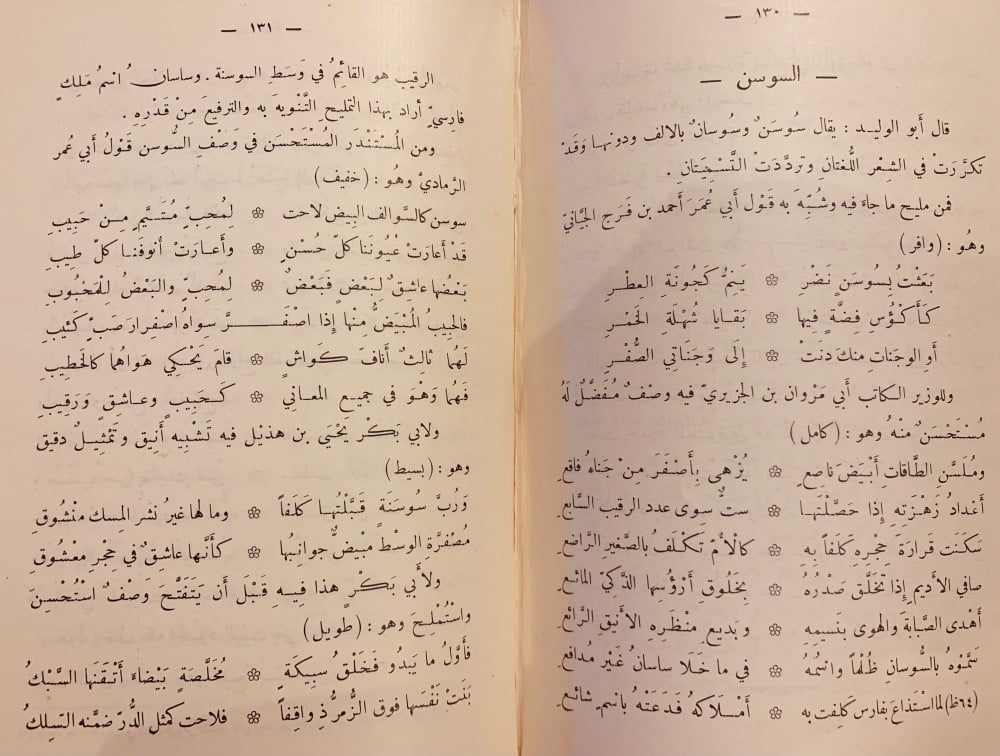 — ١٣٠ —
— السوسن —
قال أبو الوليد : يقال سُوسَنٌ وسُوسانٌ بالالف ودونها وَقَدْ
تكرَّرَتْ في الشِعْر اللُغتان وتردَّدَتْ التَّسْمِيَتانِ .
فمن مليح ما جاءَ فيه وشُبِّهَ به قَوْل أبي عُمَرَ أحمد بن فَرَج الجَيَّانيّ
وهُو : (وافر)
بَعَثْتُ بِسُوسَنٍ نَضْرِ ❁ يَنِمُّ كَجُونَةِ العِطْرِ
كَأَكْؤُسِ فِضَّةٍ فِيها ❁ بَقَايا شُهْلَةِ الخَمْرِ
أَوِ الوجَناتِ مِنكَ دَنَتْ ❁ إلَى وَجَنَاتِي الصُّفْرِ
وللوزير الكاتب أبي مَرْوان بن الجزيريّ فيه وصْفٌ مُفَضَّلٌ لَهُ
مُسْتَحْسَنٌ مِنهُ وهُو : (كامل)
ومُلَسَّنِ الطَّاقاتِ أَبْيَضَ ناصِعٍ ❁ يُزْهى بِأَصْفَرَ مِنْ جَناهُ فاقِعِ
أَعْدادُ زَهْرَتِهِ إذا حَصَّلْتَهـا ❁ ستٌّ سِوى عدد الرقيب السّابِعِ
سَكَنَت قَرارَةَ حِجْرِهِ كَلَفاً بِهِ ❁ كالأُمّ تكْلَفُ بالصَّغير الرّاضِعِ
صافي الأديم إذا تَخَلَّقَ صَدْرُهُ ❁ بِخَلُوقِ أَرْؤُسِها الذَّكيّ المائِعِ
أَهْدى الصَّبابَةَ والهوى بِنَسيمِهِ ❁ وبَديعِ مَنْظَرِهِ الأَنيقِ الرّائِعِ
سَمَّوْهُ بالسُّوسانِ ظُلْماً واسْمُهُ ❁ في ما خَلَا ساسانُ غَيْرَ مُدافَعِ
(٦٤ظ) لما اسْتَذاعَ بفارسٍ كَلِفت به ❁ أَمْلاكُهُ فَدَعَتْهُ باسْمٍ شائِعِ
— ١٣١ —
الرقيب هو القائِمُ في وَسَطِ السوسنة . وساسان ُ اسْمُ مَلِكٍ
فارِسيّ أراد بهذا التمليح التَّنْويهَ به والترفيعَ مِنْ قَدْرِهِ .
ومن المُسْتَنْدَر المُسْتَحْسَن في وَصْفِ السُّوسن قَوْلُ أَبي عُمر
الرَّماديّ وهُو : (خفيف)
سوسن كالسَّوالف البِيض لاحت ❁ لِمُحِبٍّ مُتَيَّمٍ مِنْ حَبيبِ
قَدْ أعارَتْ عُيُونَنا كلّ حُسْنٍ ❁ وأَعارَتْ أُنوفَنا كلّ طيبِ
بَعْضُها عاشِقٌ لِبَعْضٍ فَبَعْضٌ ❁ لِمُحِبٍّ والبَعْضُ لِلْمَحْبُوبِ
فالحبيبُ المُبْيَضُّ منها إذا اصْفَـرَّ سواهُ اصْفِرارَ صَبٍّ كَئيبِ
لَهُما ثالِثٌ أَنافَ كَواشٍ ❁ قامَ يَحْكي هَوَاهُما كالخَطيبِ
فَهُما وَهْوَ في جميع المعاني ❁ كَحَبيبٍ وعاشِقٍ وَرَقِيبِ
ولابي بَكْر يَحْيَى بن هذَيْل فيه تَشْبِيه أَنِيق وتَمْثِيلٌ دقيق
وهو : (بسيط)
وَرُبَّ سُوسَنَةٍ قَبَّلْتُها كَلَفاً ❁ وما لها غيرُ نَشْر المسك مَنْشُوقِ
مُصْفَرّةِ الوسْطِ مبْيَضٌّ جوانِبُها ❁ كأنَّها عاشقٌ في حِجْرِ معْشُوقِ
ولأبي بَكْرٍ هذا فِيـهِ قَبْلَ أن يَتَفَتَّحَ وَصْفٌ اسْتُحْسِنَ
واسْتُمْلِحَ وهو : (طويل)
فأَوَّلُ ما يَبْدُو فَخَلْقُ سبِيكَةٍ ❁ مُخَلَّصَةٍ بَيْضاءَ أَتْقَنَها السَّبْكُ
بَنَتْ نَفْسَها فوق الزُّمرُّذِ واقِفاً ❁ فلاحت كمثل الدُّرّ ضمَّنه السّلكُ